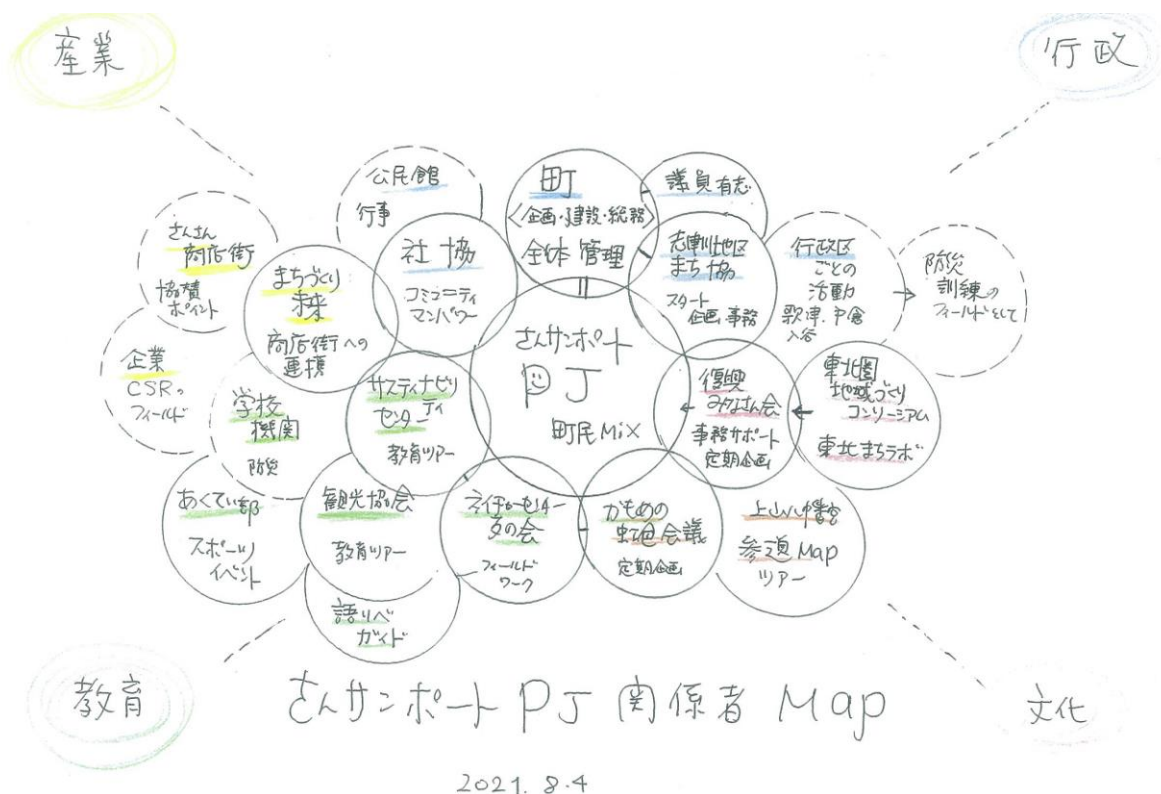 産業
行政
公民館
行事
町
〈企画・建設・総務〉
全体管理
議員有志
さんさん
商店街
協賛
ポイント
まちづくり
未来
商店街への
連携
社協
コミュニティ
マンパワー
志津川地区
まち協
スタート
企画・事務
行政区
ごとの
活動
歌津、戸倉
入谷
防災
訓練の
フィールドとして
企業
CSRの
フィールド
学校
機関
防災
サスティナビリ
ティ
センター
教育ツアー
さんサンポート
PJ
町民Mix
復興
みなさん会
事務サポート
定期企画
東北圏
地域づくり
コンソーシアム
東北まちラボ
あくてぃ部
スポーツ
イベント
観光協会
教育ツアー
ネイチャーセンター
友の会
フィールド
ワーク
かもめの
虹色会議
定期企画
上山八幡宮
参道Map
ツアー
語りべ
ガイド
教育
さんサンポートPJ関係者Map
文化
2021.8.4